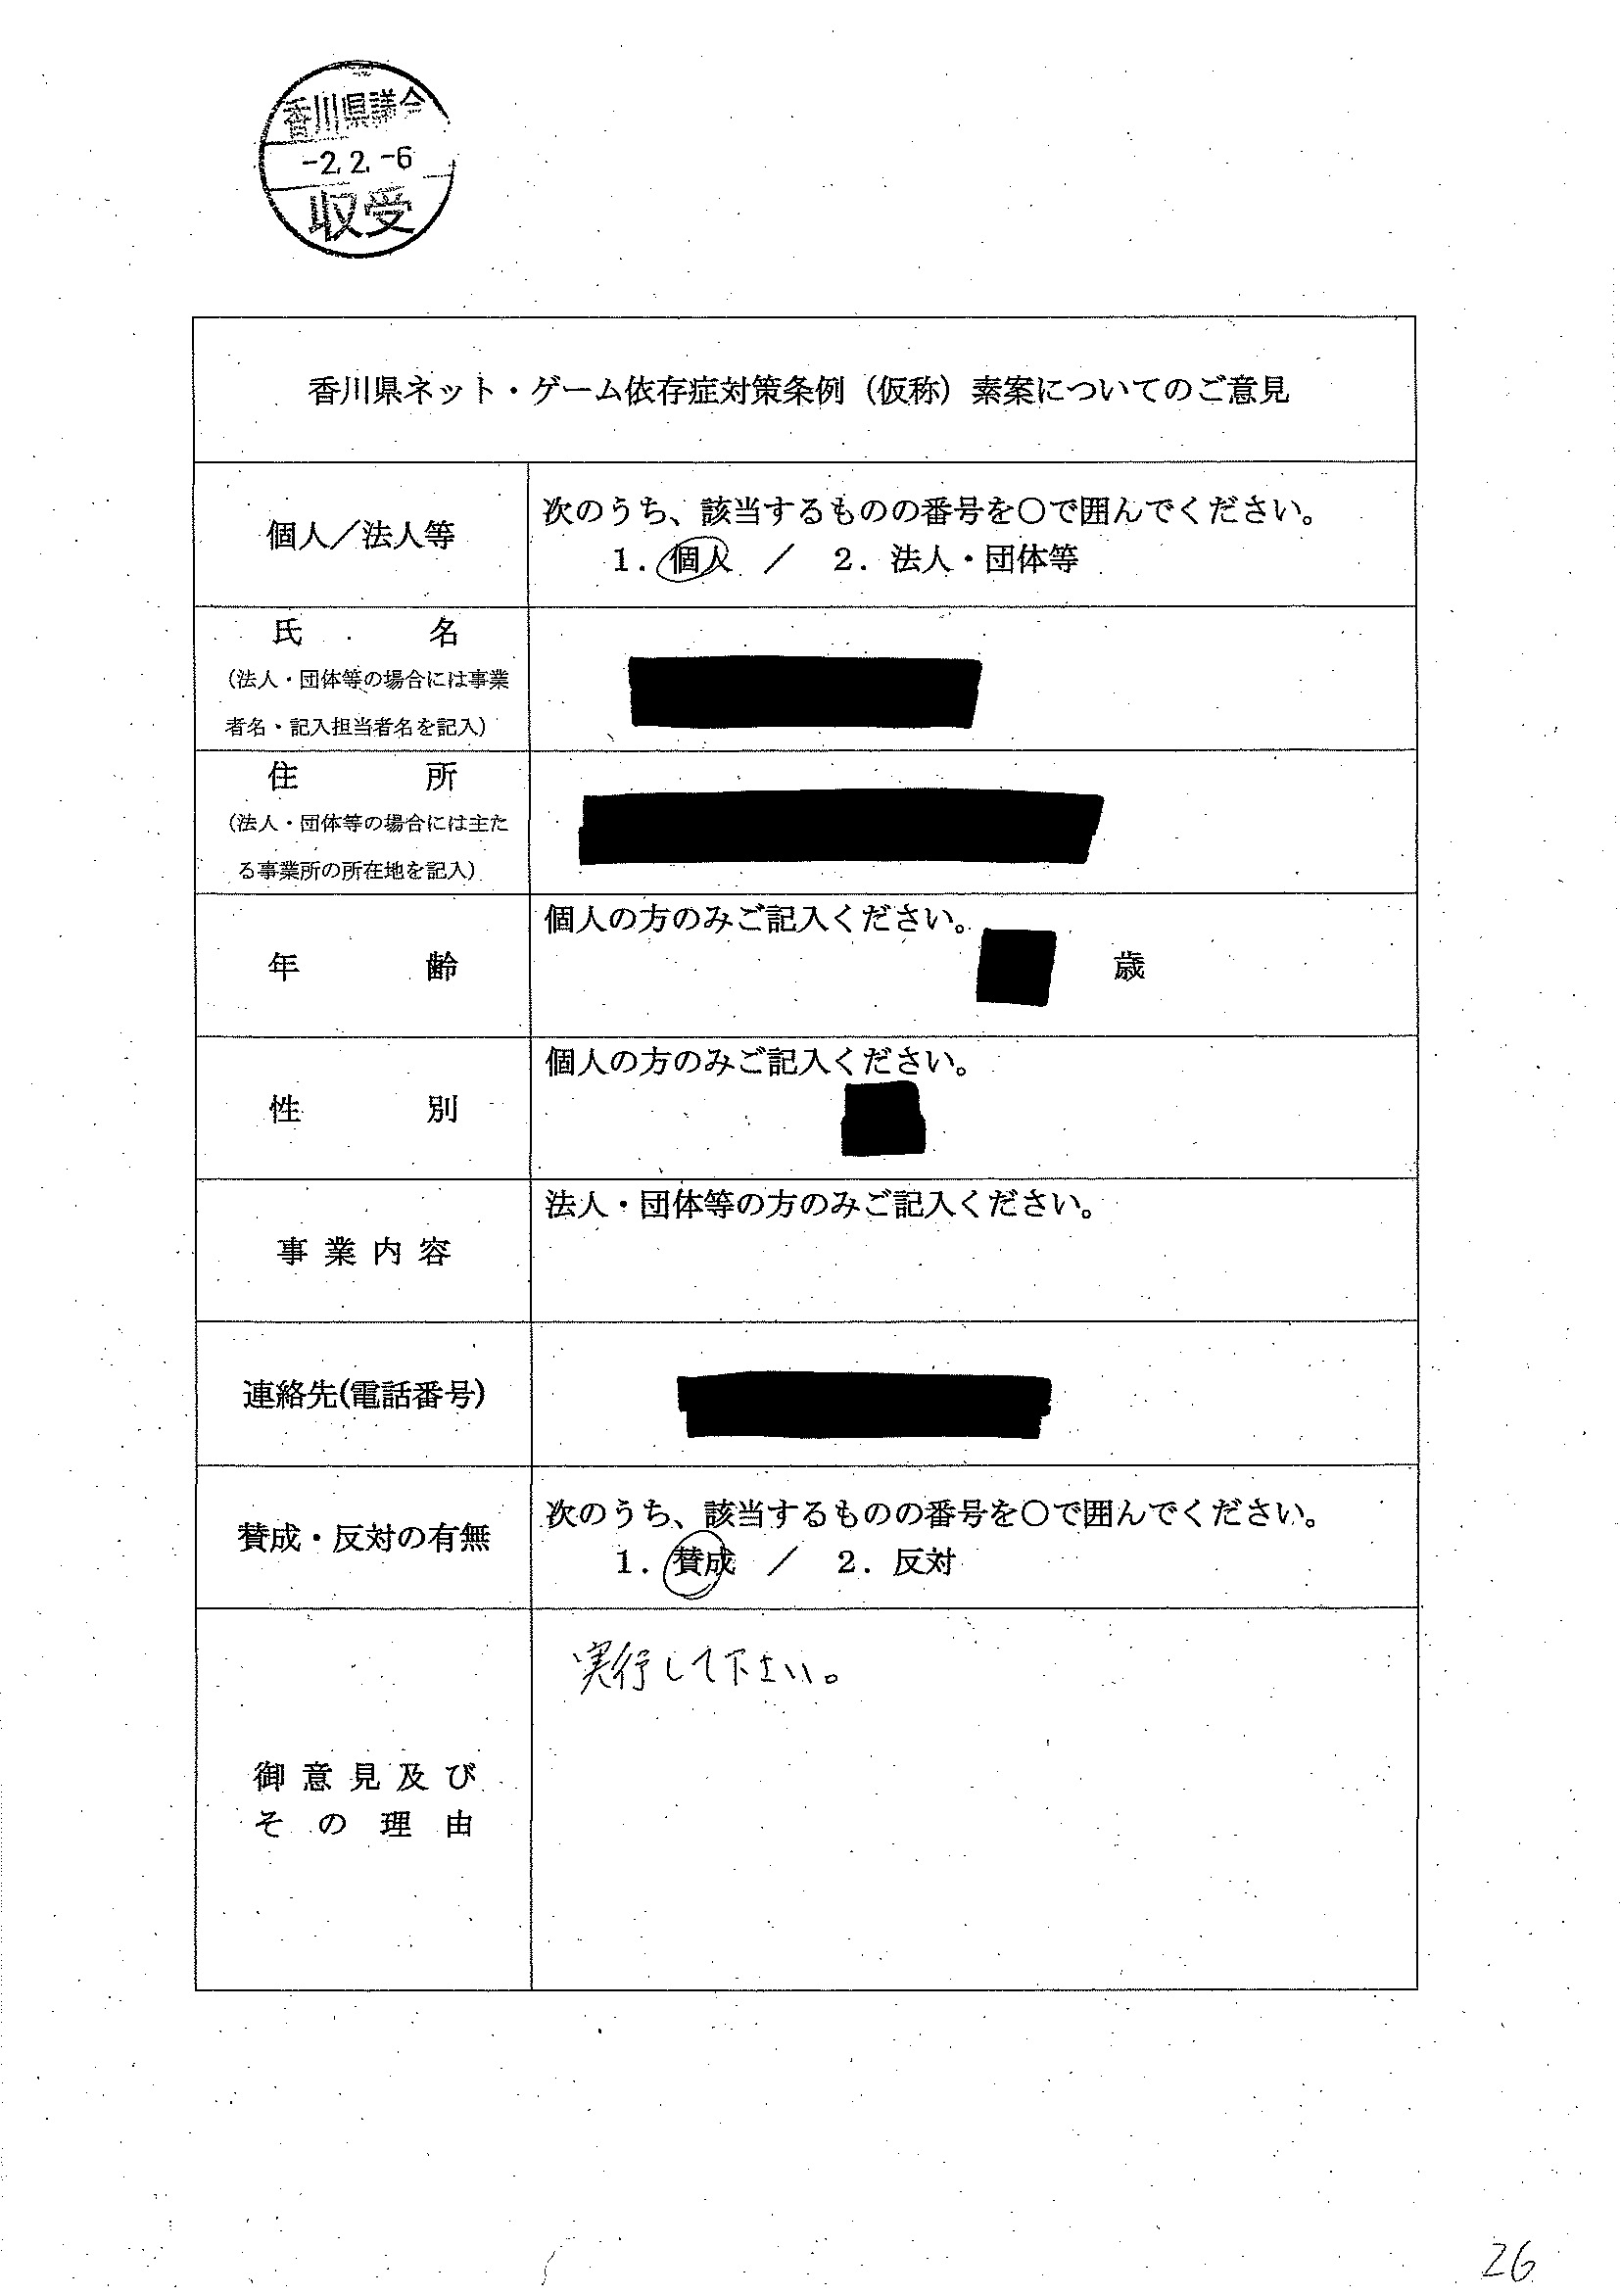 香川県議会
-2.2.-6
収受
香川県ネット・ゲーム依存症対策条例（仮称）素案についてのご意見
個人／法人等
次のうち、該当するものの番号を○で囲んでください。
1. 個人 ／ 2. 法人・団体等
氏 名
（法人・団体等の場合には事業
者名・記入担当者名を記入）
住 所
（法人・団体等の場合には主た
る事業所の所在地を記入）
年 齢
個人の方のみご記入ください。
歳
性 別
個人の方のみご記入ください。
事業内容
法人・団体等の方のみご記入ください。
連絡先(電話番号)
賛成・反対の有無
次のうち、該当するものの番号を○で囲んでください。
1. 賛成 ／ 2. 反対
御意見及び
その理由
実行して下さい。
26